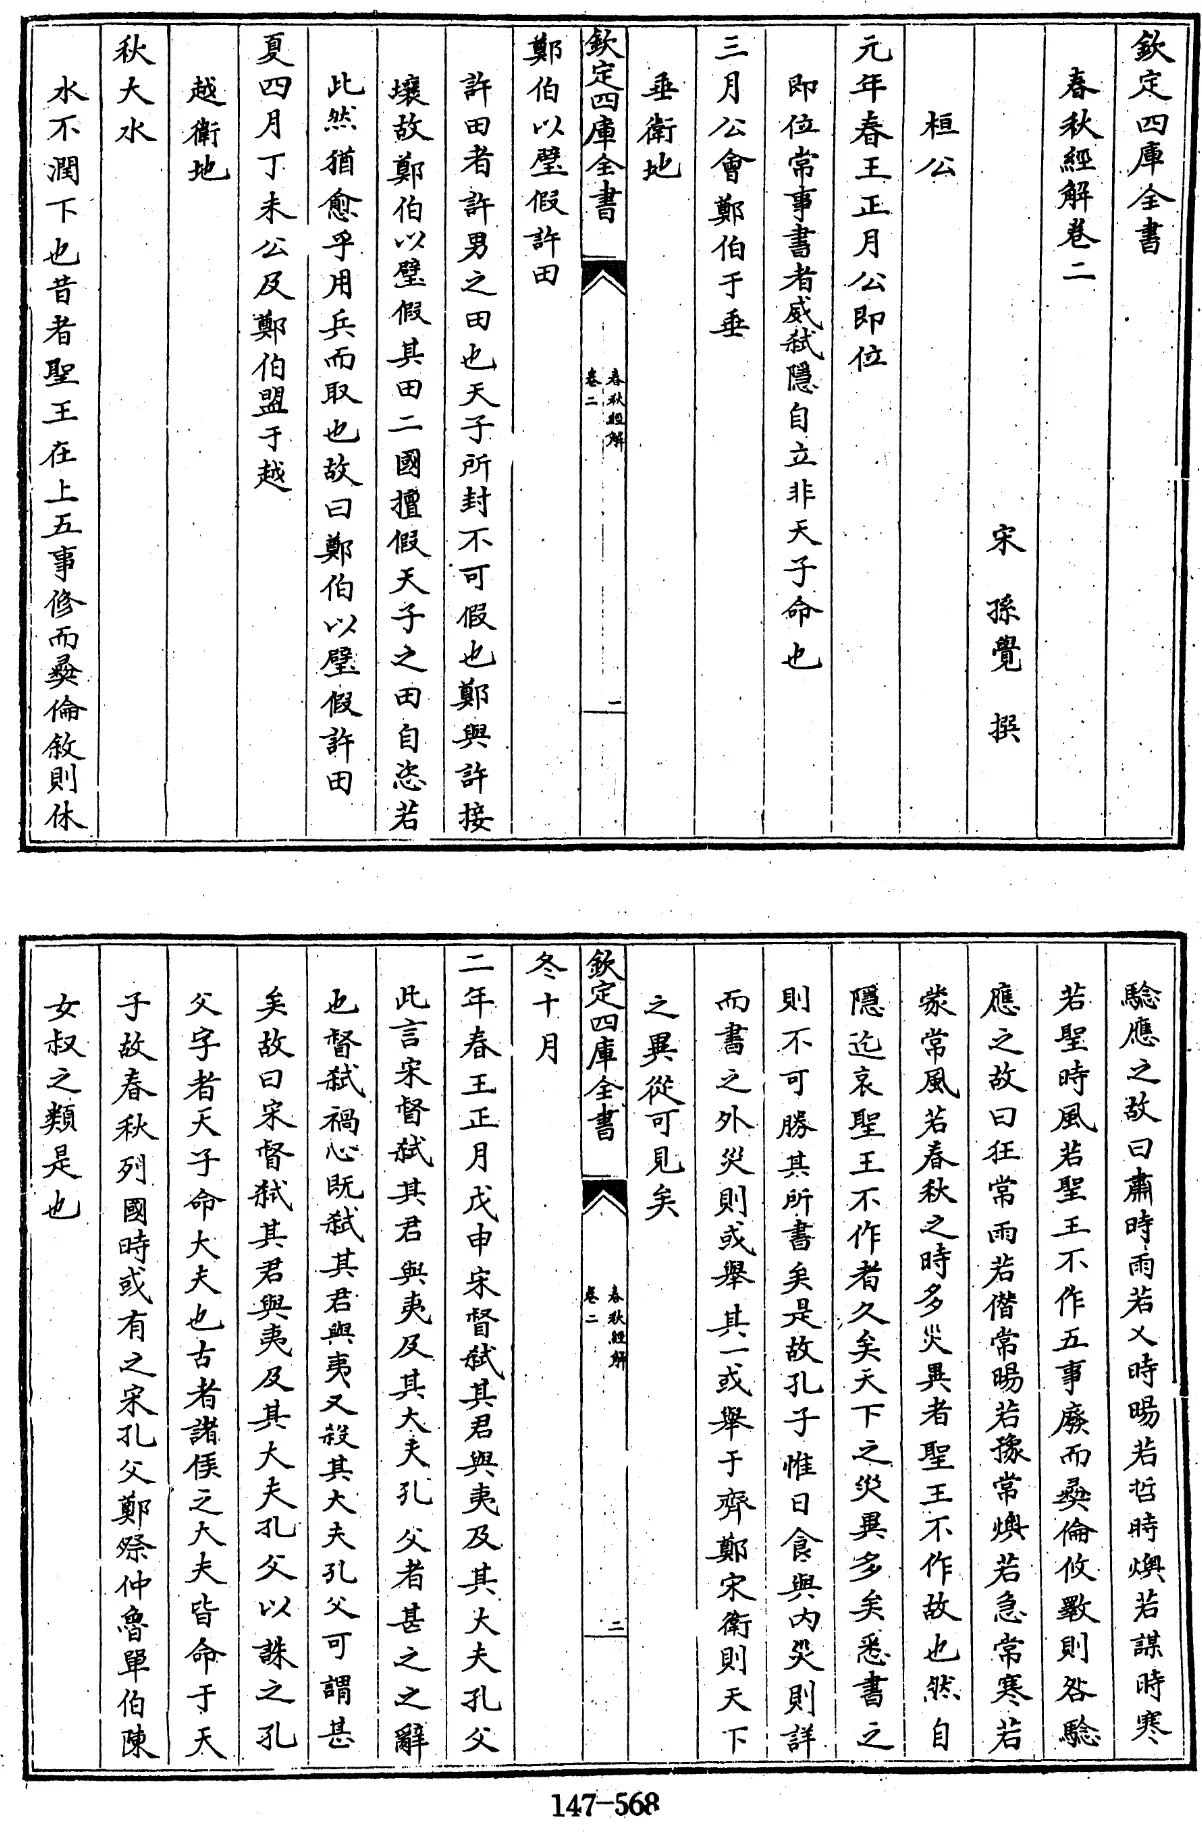 欽定四庫全書
春秋經解卷二
宋 孫覺 撰
桓公
元年春王正月公即位
即位常事書者威弑隱自立非天子命也
三月公會鄭伯于垂
垂衛地
欽定四庫全書
春秋經解
卷二
一
鄭伯以璧假許田
許田者許男之田也天子所封不可假也鄭與許接
壤故鄭伯以璧假其田二國擅假天子之田自恣若
此然猶愈乎用兵而取也故曰鄭伯以璧假許田
夏四月丁未公及鄭伯盟于越
越衛地
秋大水
水不潤下也昔者聖王在上五事修而彛倫敘則休
驗應之故曰肅時雨若乂時暘若哲時燠若謀時寒
若聖時風若聖王不作五事廢而彛倫攸斁則咎驗
應之故曰狂常雨若僭常暘若豫常燠若急常寒若
蒙常風若春秋之時多災異者聖王不作故也然自
隱迄哀聖王不作者久矣天下之災異多矣悉書之
則不可勝其所書矣是故孔子惟日食與内災則詳
而書之外災則或舉其一或舉于齊鄭宋衛則天下
之異從可見矣
欽定四庫全書
春秋經解
卷二
二
冬十月
二年春王正月戊申宋督弑其君與夷及其大夫孔父
此言宋督弑其君與夷及其大夫孔父者甚之之辭
也督弑禍心既弑其君與夷又殺其大夫孔父可謂甚
矣故曰宋督弑其君與夷及其大夫孔父以誅之孔
父字者天子命大夫也古者諸侯之大夫皆命于天
子故春秋列國時或有之宋孔父鄭祭仲魯單伯陳
女叔之類是也
147-568